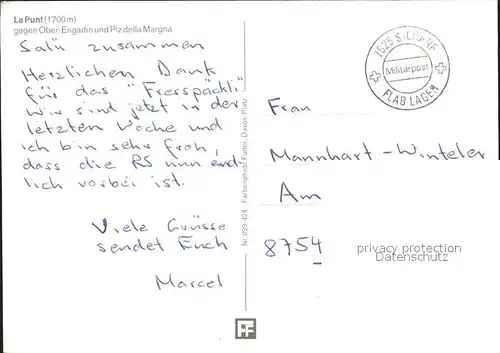 La Punt (1700 m)
gegen Ober-Engadin und Piz della Margna
Salü zusammen
Herzlichen Dank
für das "Fresspäckli"
Wir sind jetzt in der
letzten Woche und
ich bin sehr froh,
dass die RS nun end-
lich vorbei ist.
Viele Grüsse
sendet Euch
Marcel
Nr. 029-424 Farbenphoto Furter, Davos-Platz
7525 S-CHANF
Militärpost
FLAB LAGER
Frau
Mannhart-Winteler
Am
8754
privacy protection
Datenschutz